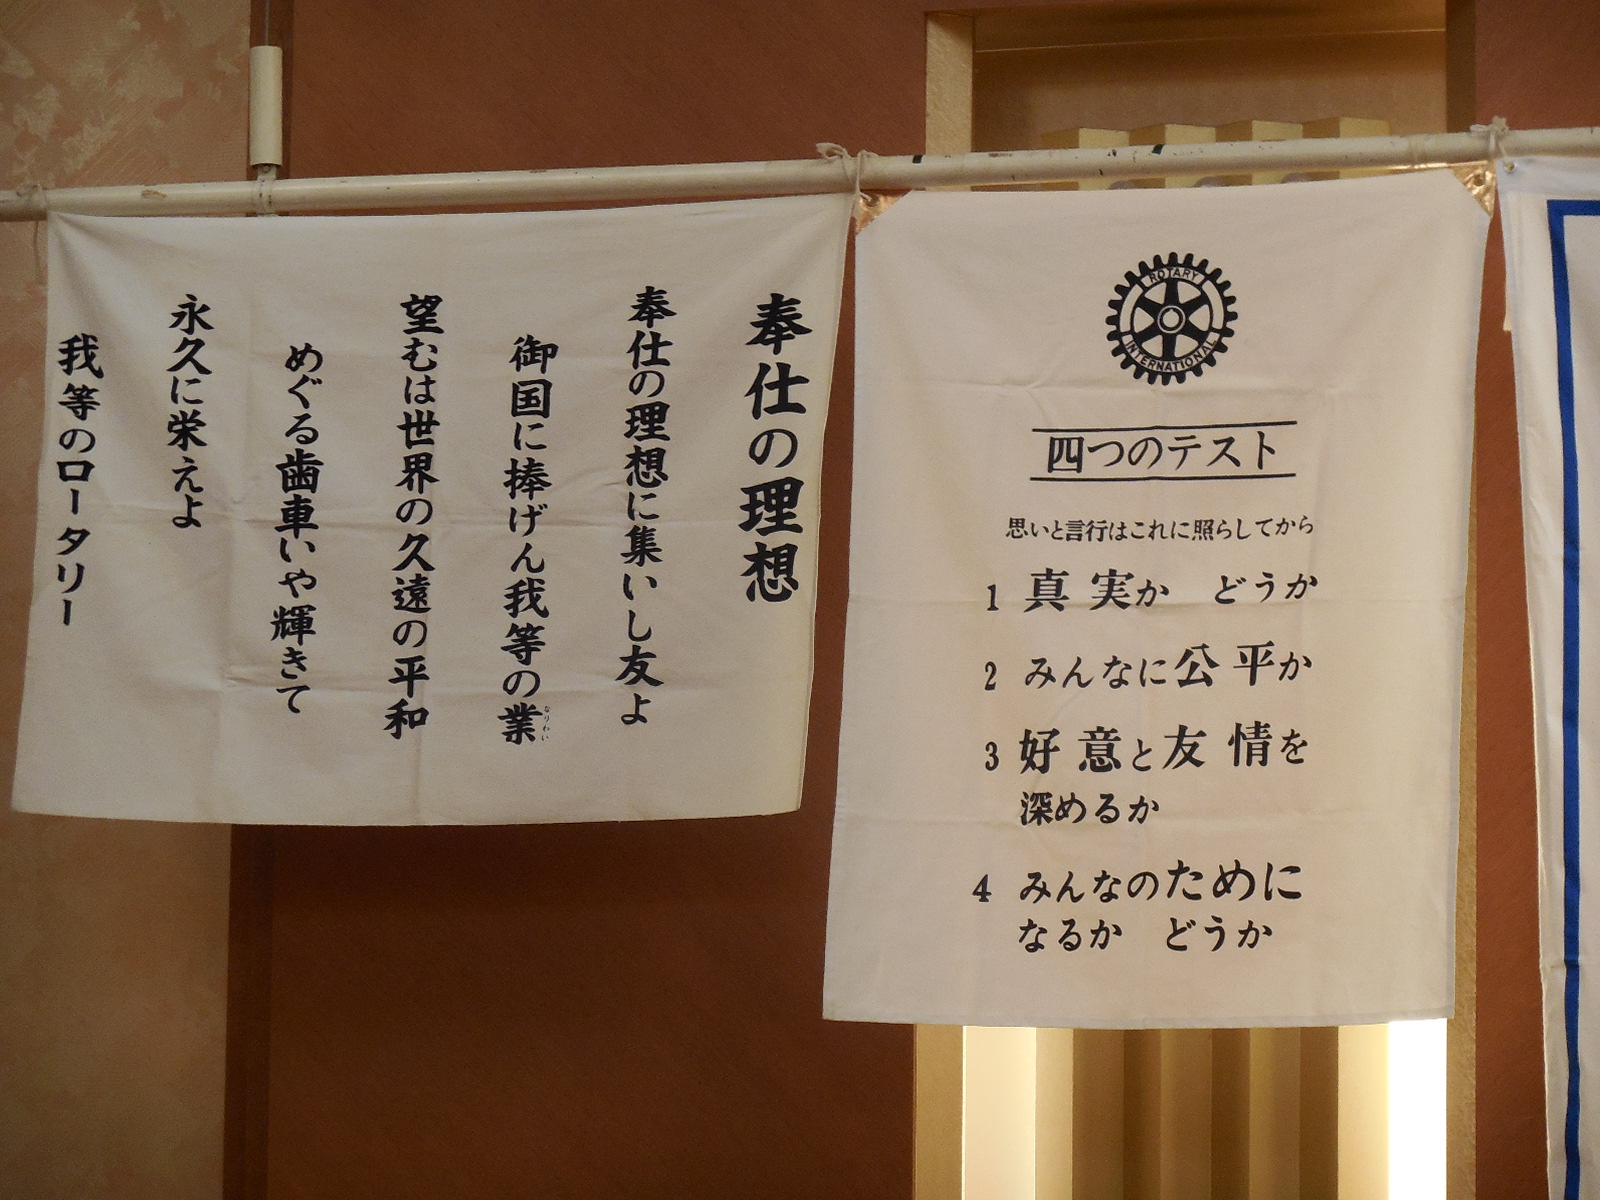 奉仕の理想
奉仕の理想に集いし友よ
御国に捧げん我等の業
なりわい
望むは世界の久遠の平和
めぐる歯車いや輝きて
永久に栄えよ
我等のロータリー
ROTARY
INTERNATIONAL
四つのテスト
思いと言行はこれに照らしてから
1 真実か どうか
2 みんなに公平か
3 好意と友情を
深めるか
4 みんなのために
なるか どうか